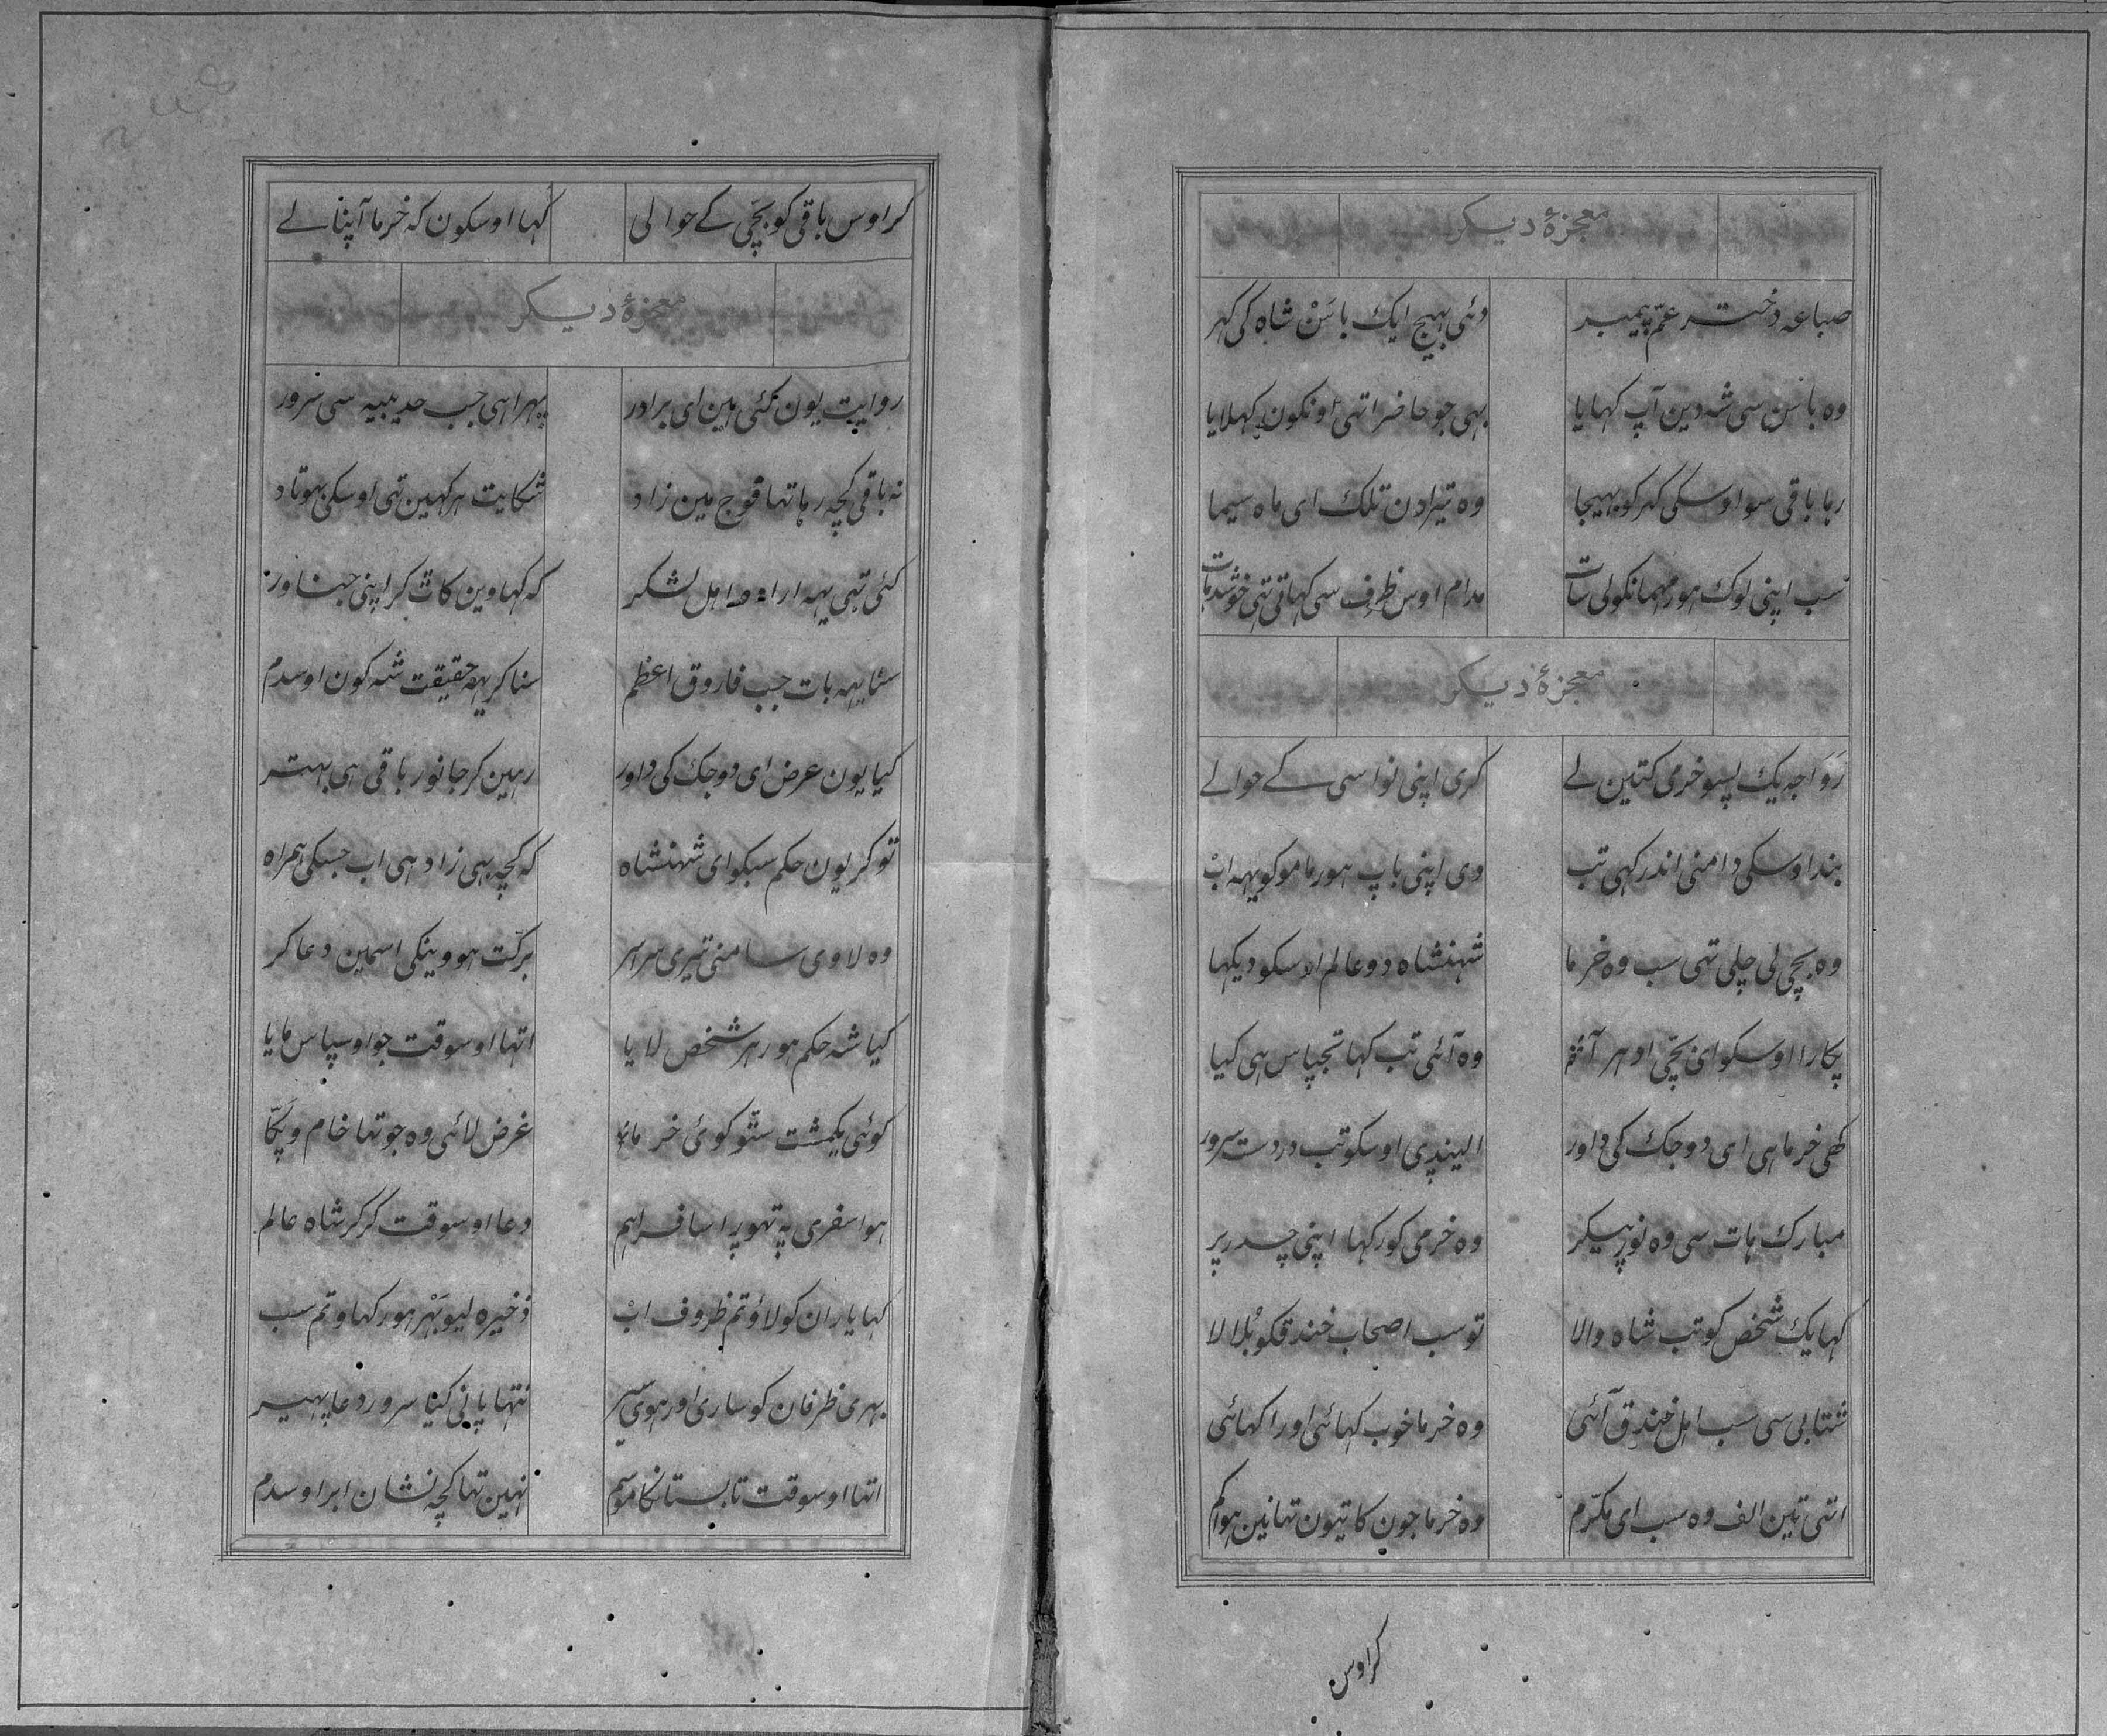 معجزهٔ دیگر
صباعه دختر عمّ پیمبر دئی بهیج ایک باسَنْ شاہ کی کہر
وہ باسَن سی شہ دین آپ کہایا بہی جو حاضر اتہی اونکون کہلایا
رہا باقی سو اوسکی کہر کو بہیجا وہ تیرا دن تلک ای ماہ سیما
سب اپنی لوک ہور مہمانکولی سات مدام اوس ظرف سی کہاتی تہی خوش
معجزهٔ دیگر
رَوَاجہ یک پسو خرمی کتین لے کری اپنی نواسی کے حوالے
بندا وسکی دامنی اندر کہی تب وی اپنی باپ ہور ماموکو یہہ ابْ
وہ بچی لی چلی تہی سب وہ خرما شہنشاہ دو عالم اوسکو دیکہا
پکارا اوسکو ای بچّی ادہر آ وہ آئی تب کہا تجپاس ہی کیا
کہی خرما ہی ای دوجک کی داور الیندپی اوسکو تب در دست سرور
مبارک ہات سی وہ نور پیکر وہ خرمی کو رکہا اپنی چدر پر
کہا یک شخص کو تب شاہ والا تو سب اصحاب خندقکو بُلا لا
شتابی سی سب اہل خندق آئی وہ خرما خوب کہائی اور اکہائی
اتہی تین الف وہ سب ای مکرّم وہ خرما جون کا تیون تہا نین ہوا کم
کر اوس
کر اوس باقی کو بچّی کے حوالی کہا اوسکون کہ خرما آپنا لے
معجزهٔ دیگر
روایت یون کئی ہین ای برادر پہرا ہی جب حدیبیہ سی سَرور
نہ باقی کچہ رہا تہا فوج مین زاد شکایت ہر کہین تہی اوسکی بہوتاد
کئی تہی یہہ ارادہ اہل لشکر کہ کہاوین کاٹ کر اپنی جناور
سُنا یہہ بات جب فاروق اعظم سنا کر یہہ حقیقت شہ کون اوسدم
کیا یون عرض ای دوجک کی داور رہین کر جانور باقی ہی بہتر
تو کر یون حکم سبکو ای شہنشاہ کہ کچہ بہی زاد ہی اب جسکی ہمراہ
وہ لاوی سامنی تیری سراسر برکت ہووینکی اسمین دعا کر
کیا شہ حکم ہور ہر شخص لایا اتہا اوسوقت جو اوسپاس مایا
کوئی یکمشت ستّو کوئی خرما غرض لائی وہ جو تہا خام و پکّا
ہوا سفری پہ تہورا سا فراہم دعا اوسوقت کر کر شاہ عالم
کہا یاران کو لاؤ تم ظروف ابْ ذخیرہ لیو بَہْر ہور کہاو تم سب
بہری ظرفان کو ساری اور ہوی سیر نتہا پانی کیا سرور دعا پہیر
اتہا اوسوقت تابستانکا موسم نہین تہا کچہ نشان ابر اوسدم